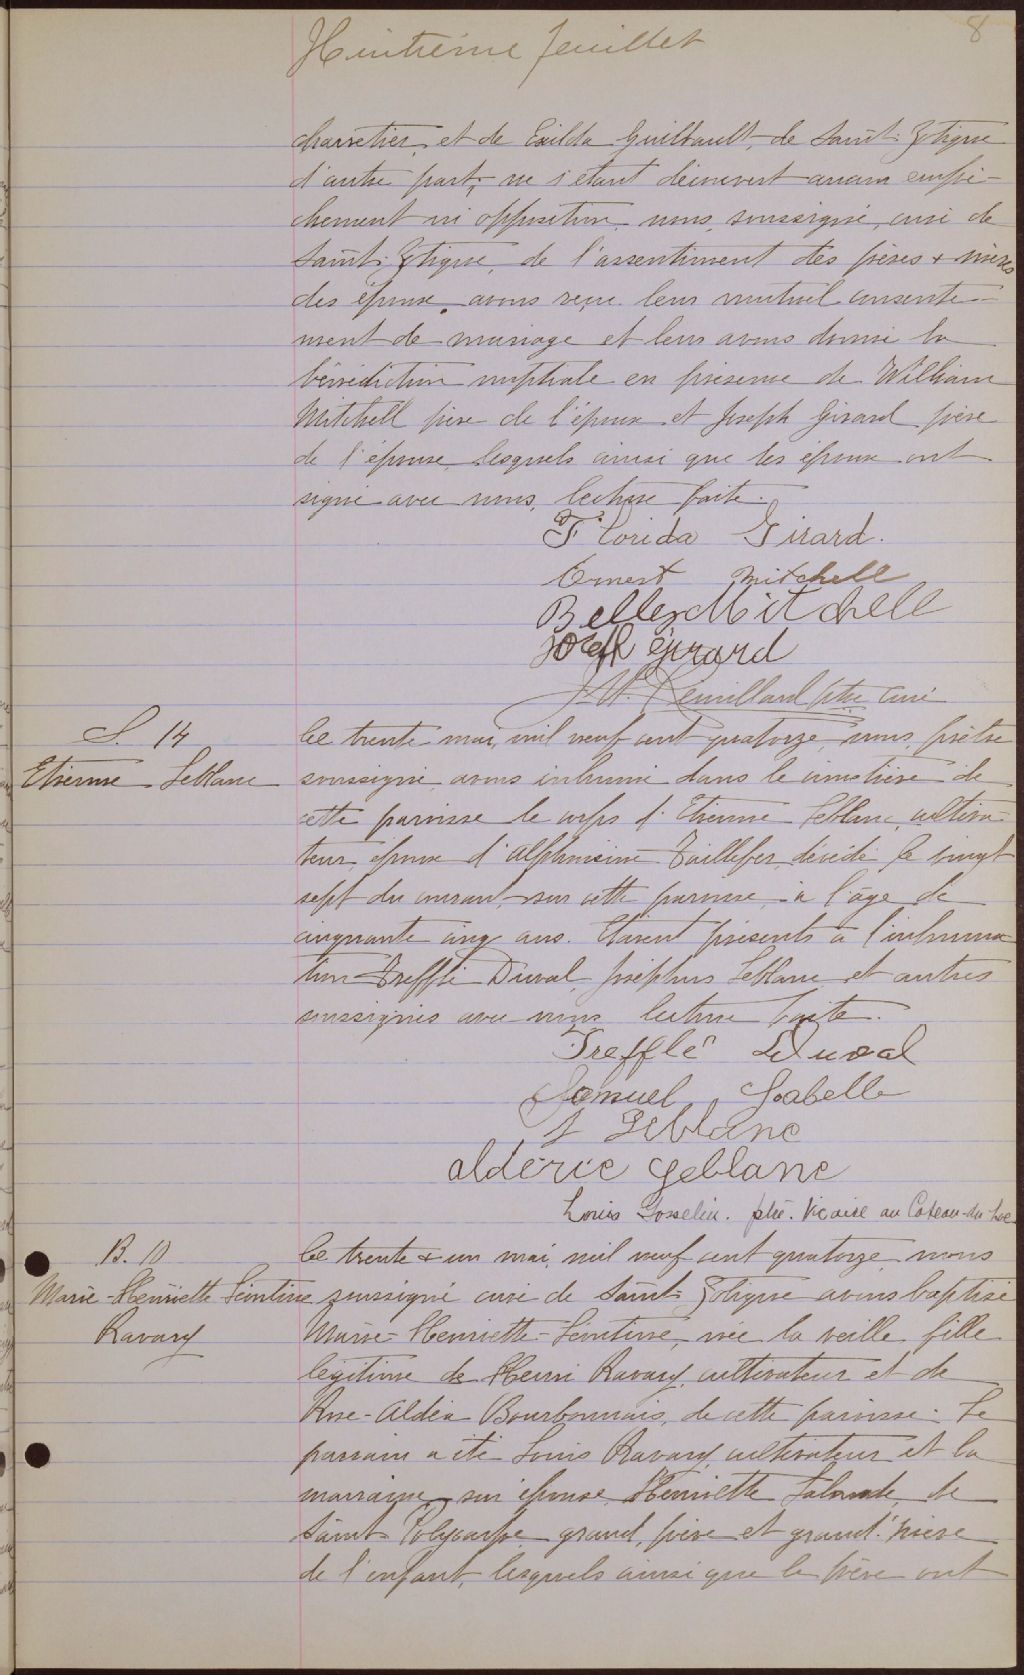 8
Huitième feuillet
charretier, et de Exilda Guilbault, de Saint-Zotique
d'autre part, ne s'étant découvert aucun empê-
chement ni opposition, nous, soussigné, curé de
Saint-Zotique, de l'assentiment des pères & mères
des époux, avons reçu leur mutuel consente-
ment de mariage et leur avons donné la
bénédiction nuptiale en présence de William
Mitchell père de l'époux et Joseph Girard père
de l'épouse lesquels ainsi que les époux ont
signé avec nous, lecture faite.
Florida Girard.
Ernest Mitchell
Belley Mitchell
Joseph Girard
J. W. Remillard ptre curé
S. 14
Etienne Leblanc
Le trente mai, mil neuf cent quatorze, nous, prêtre
soussigné, avons inhumé dans le cimetière de
cette paroisse le corps d'Etienne Leblanc, cultiva-
teur, époux d'Alphonsine Taillefer, décédé le vingt
sept du courant, sur cette paroisse, à l'âge de
cinquante cinq ans. Etaient présents à l'inhuma-
tion Trefflé Duval, Joséphus Leblanc et autres
soussignés avec nous lecture faite.
Trefflé Duval
Samuel Isabelle
J Leblanc
Aldéric Leblanc
Louis Gosselin. ptre. Vicaire au Coteau-du-Lac
B. 10
Marie-Henriette Léontine
Ravary
Le trente & un mai, mil neuf cent quatorze, nous
soussigné curé de Saint-Zotique avons baptisé
Marie-Henriette-Léontine, née la veille, fille
légitime de Henri Ravary, cultivateur et de
Rose-Aldéa Bourbonnais, de cette paroisse. Le
parrain a été Louis Ravary, cultivateur et la
marraine, son épouse, Henriette Lalonde, de
Saint-Polycarpe grand, père et grand'mère
de l'enfant, lesquels ainsi que le père ont